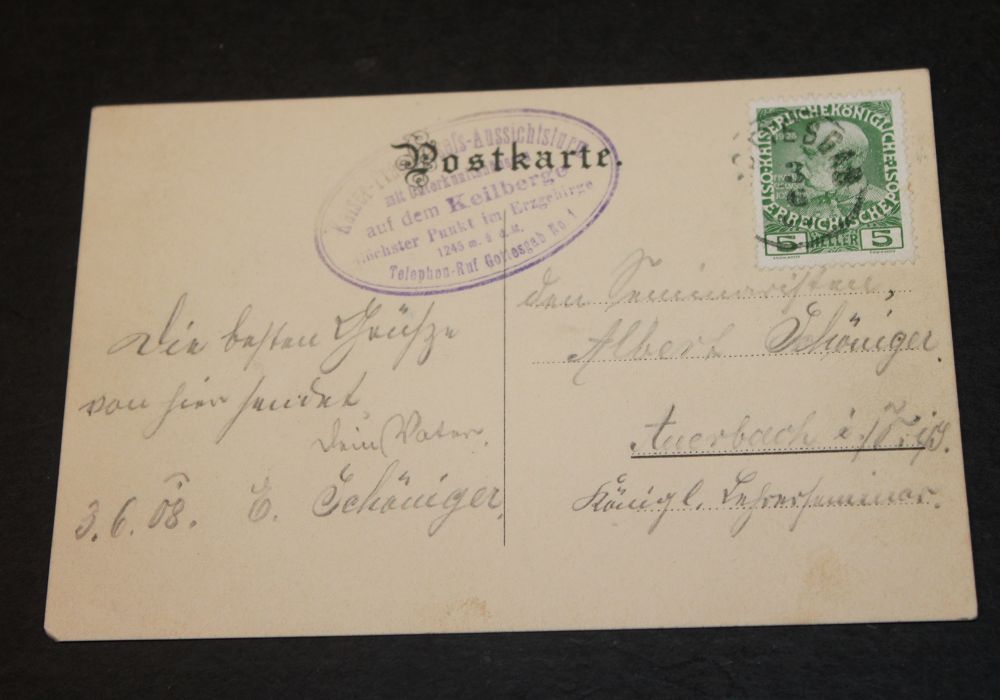 Postkarte.
Aussichtsturm
mit Unterkunftshaus
auf dem Keilberge
höchster Punkt im Erzgebirge
1245 m. ü. d. M.
Telephon-Ruf Gottesgab No 1
KAISERLICHE KÖNIGLICHE
ÖSTERREICHISCHE POST
5 HELLER 5
3
6
Die besten Grüsze
von hier sendet
Dein Vater.
3.6.08. E. Schöniger.
den Seminaristen,
Albert Schöniger.
Auerbach i.
Königl. Lehrerseminar.